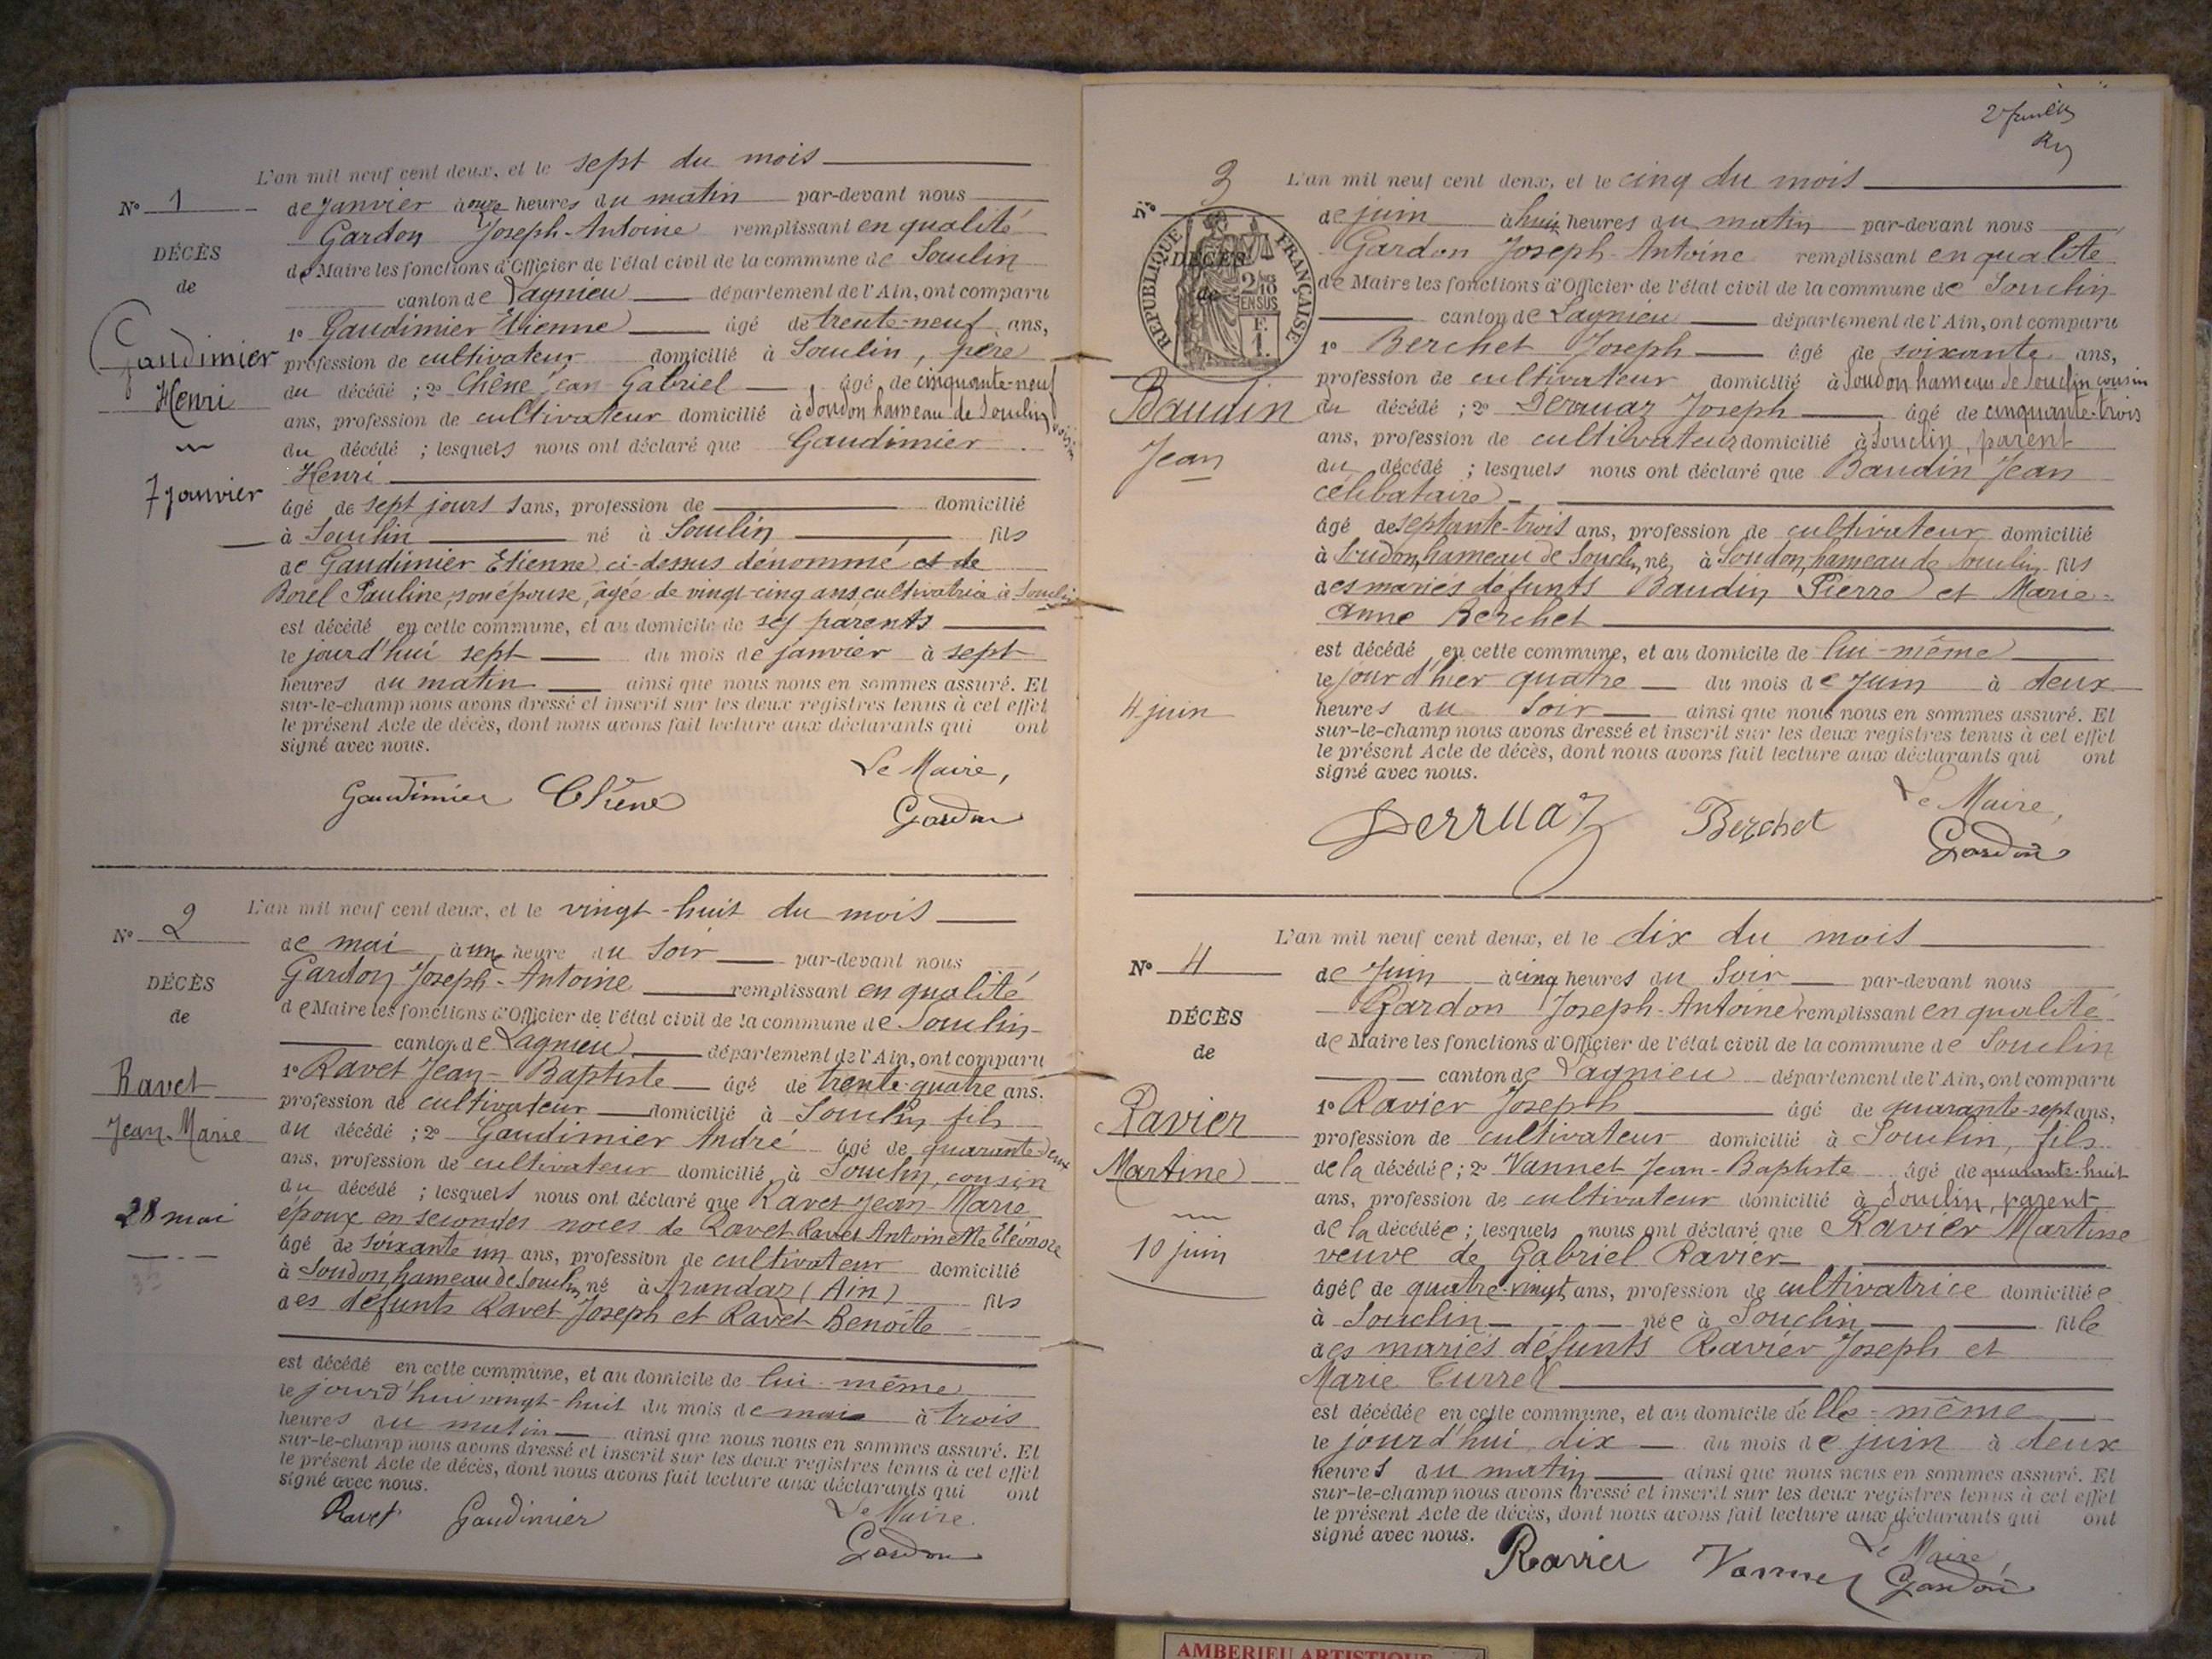 L'an mil neuf cent deux, et le sept du mois
N° 1
de janvier à onze heures du matin par-devant nous
Gardon Joseph-Antoine remplissant en qualité
DÉCÈS
de Maire les fonctions d'Officier de l'état civil de la commune de Souclin
de
canton de Lagnieu département de l'Ain, ont comparu
1° Gaudimier Etienne âgé de trente-neuf ans,
Gaudimier
profession de cultivateur domicilié à Souclin, père
du décédé ; 2° Chêne Jean Gabriel âgé de cinquante-neuf
Henri
ans, profession de cultivateur domicilié à Soudon hameau de Souclin voisin
du décédé ; lesquels nous ont déclaré que Gaudimier
Henri
7 janvier
âgé de sept jours sans, profession de domicilié
à Souclin né à Souclin fils
de Gaudimier Etienne ci-dessus dénommé et de
Borel Pauline, son épouse, âgée de vingt-cinq ans, cultivatrice à Souclin
est décédé en cette commune, et au domicile de ses parents
le jourd'hui sept du mois de janvier à sept
heures du matin ainsi que nous nous en sommes assuré. Et
sur-le-champ nous avons dressé et inscrit sur les deux registres tenus à cet effet
le présent Acte de décès, dont nous avons fait lecture aux déclarants qui ont
signé avec nous.
Le Maire,
Gaudimier Chêne Gardon
L'an mil neuf cent deux, et le vingt-huit du mois
N° 2
de mai à une heure du soir par-devant nous
Gardon Joseph-Antoine remplissant en qualité
DÉCÈS
de Maire les fonctions d'Officier de l'état civil de la commune de Souclin
de
canton de Lagnieu département de l'Ain, ont comparu
1° Ravet Jean-Baptiste âgé de trente-quatre ans.
Ravet
profession de cultivateur domicilié à Souclin fils
Jean-Marie
du décédé ; 2° Gaudimier André âgé de quarante-deux
ans, profession de cultivateur domicilié à Souclin, cousin
du décédé ; lesquels nous ont déclaré que Ravet Jean-Marie
28 mai
époux en secondes noces de Ravet Ravet Antoinette Eléonore
âgé de soixante un ans, profession de cultivateur domicilié
à Soudon hameau de Souclin, né à Arandaz (Ain) fils
des défunts Ravet Joseph et Ravet Benoîte
est décédé en cette commune, et au domicile de lui-même
le jourd'hui vingt-huit du mois de mai à trois
heures du matin ainsi que nous nous en sommes assuré. Et
sur-le-champ nous avons dressé et inscrit sur les deux registres tenus à cet effet
le présent Acte de décès, dont nous avons fait lecture aux déclarants qui ont
signé avec nous.
Le Maire.
Ravet Gaudimier Gardon
L'an mil neuf cent deux, et le cinq du mois
N° 3
de juin à huit heures du matin par-devant nous
Gardon Joseph-Antoine remplissant en qualité
RÉPUBLIQUE FRANÇAISE
DÉCÈS
de
de Maire les fonctions d'Officier de l'état civil de la commune de Souclin
canton de Lagnieu département de l'Ain, ont comparu
1° Berchet Joseph âgé de soixante ans,
profession de cultivateur domicilié à Soudon hameau de Souclin cousin
Baudin
du décédé ; 2° Derruaz Joseph âgé de cinquante-trois
ans, profession de cultivateur domicilié à Souclin, parent
Jean
du décédé ; lesquels nous ont déclaré que Baudin Jean
célibataire
âgé de septante-trois ans, profession de cultivateur domicilié
à Soudon, hameau de Souclin, né à Soudon, hameau de Souclin fils
des mariés défunts Baudin Pierre et Marie-
Anne Berchet
est décédé en cette commune, et au domicile de lui-même
le jour d'hier quatre du mois de juin à deux
4 juin
heures du soir ainsi que nous nous en sommes assuré. Et
sur-le-champ nous avons dressé et inscrit sur les deux registres tenus à cet effet
le présent Acte de décès, dont nous avons fait lecture aux déclarants qui ont
signé avec nous.
Le Maire,
Derruaz Berchet Gardon
L'an mil neuf cent deux, et le dix du mois
N° 4
de juin à cinq heures du soir par-devant nous
Gardon Joseph-Antoine remplissant en qualité
DÉCÈS
de Maire les fonctions d'Officier de l'état civil de la commune de Souclin
de
canton de Lagnieu département de l'Ain, ont comparu
1° Ravier Joseph âgé de quarante-sept ans,
Ravier
profession de cultivateur domicilié à Souclin, fils
Martine
de la décédée ; 2° Vannet Jean-Baptiste âgé de quarante-huit
ans, profession de cultivateur domicilié à Souclin, parent
de la décédée ; lesquels nous ont déclaré que Ravier Martine
10 juin
veuve de Gabriel Ravier
âgée de quatre-vingt ans, profession de cultivatrice domiciliée
à Souclin née à Souclin fille
des mariés défunts Ravier Joseph et
Marie Currel
est décédée en cette commune, et au domicile d'elle-même
le jourd'hui dix du mois de juin à deux
heures du matin ainsi que nous nous en sommes assuré. Et
sur-le-champ nous avons dressé et inscrit sur les deux registres tenus à cet effet
le présent Acte de décès, dont nous avons fait lecture aux déclarants qui ont
signé avec nous.
Le Maire,
Ravier Vannet Gardon
AMBERIEU ARTISTIQUE